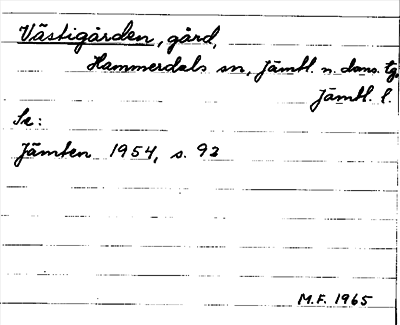 Västigården, gård,
Hammerdals sn, Jämtl. n. doms. tg.
Jämtl. l.
Se:
Jämten 1954, s. 92
M.F. 1965